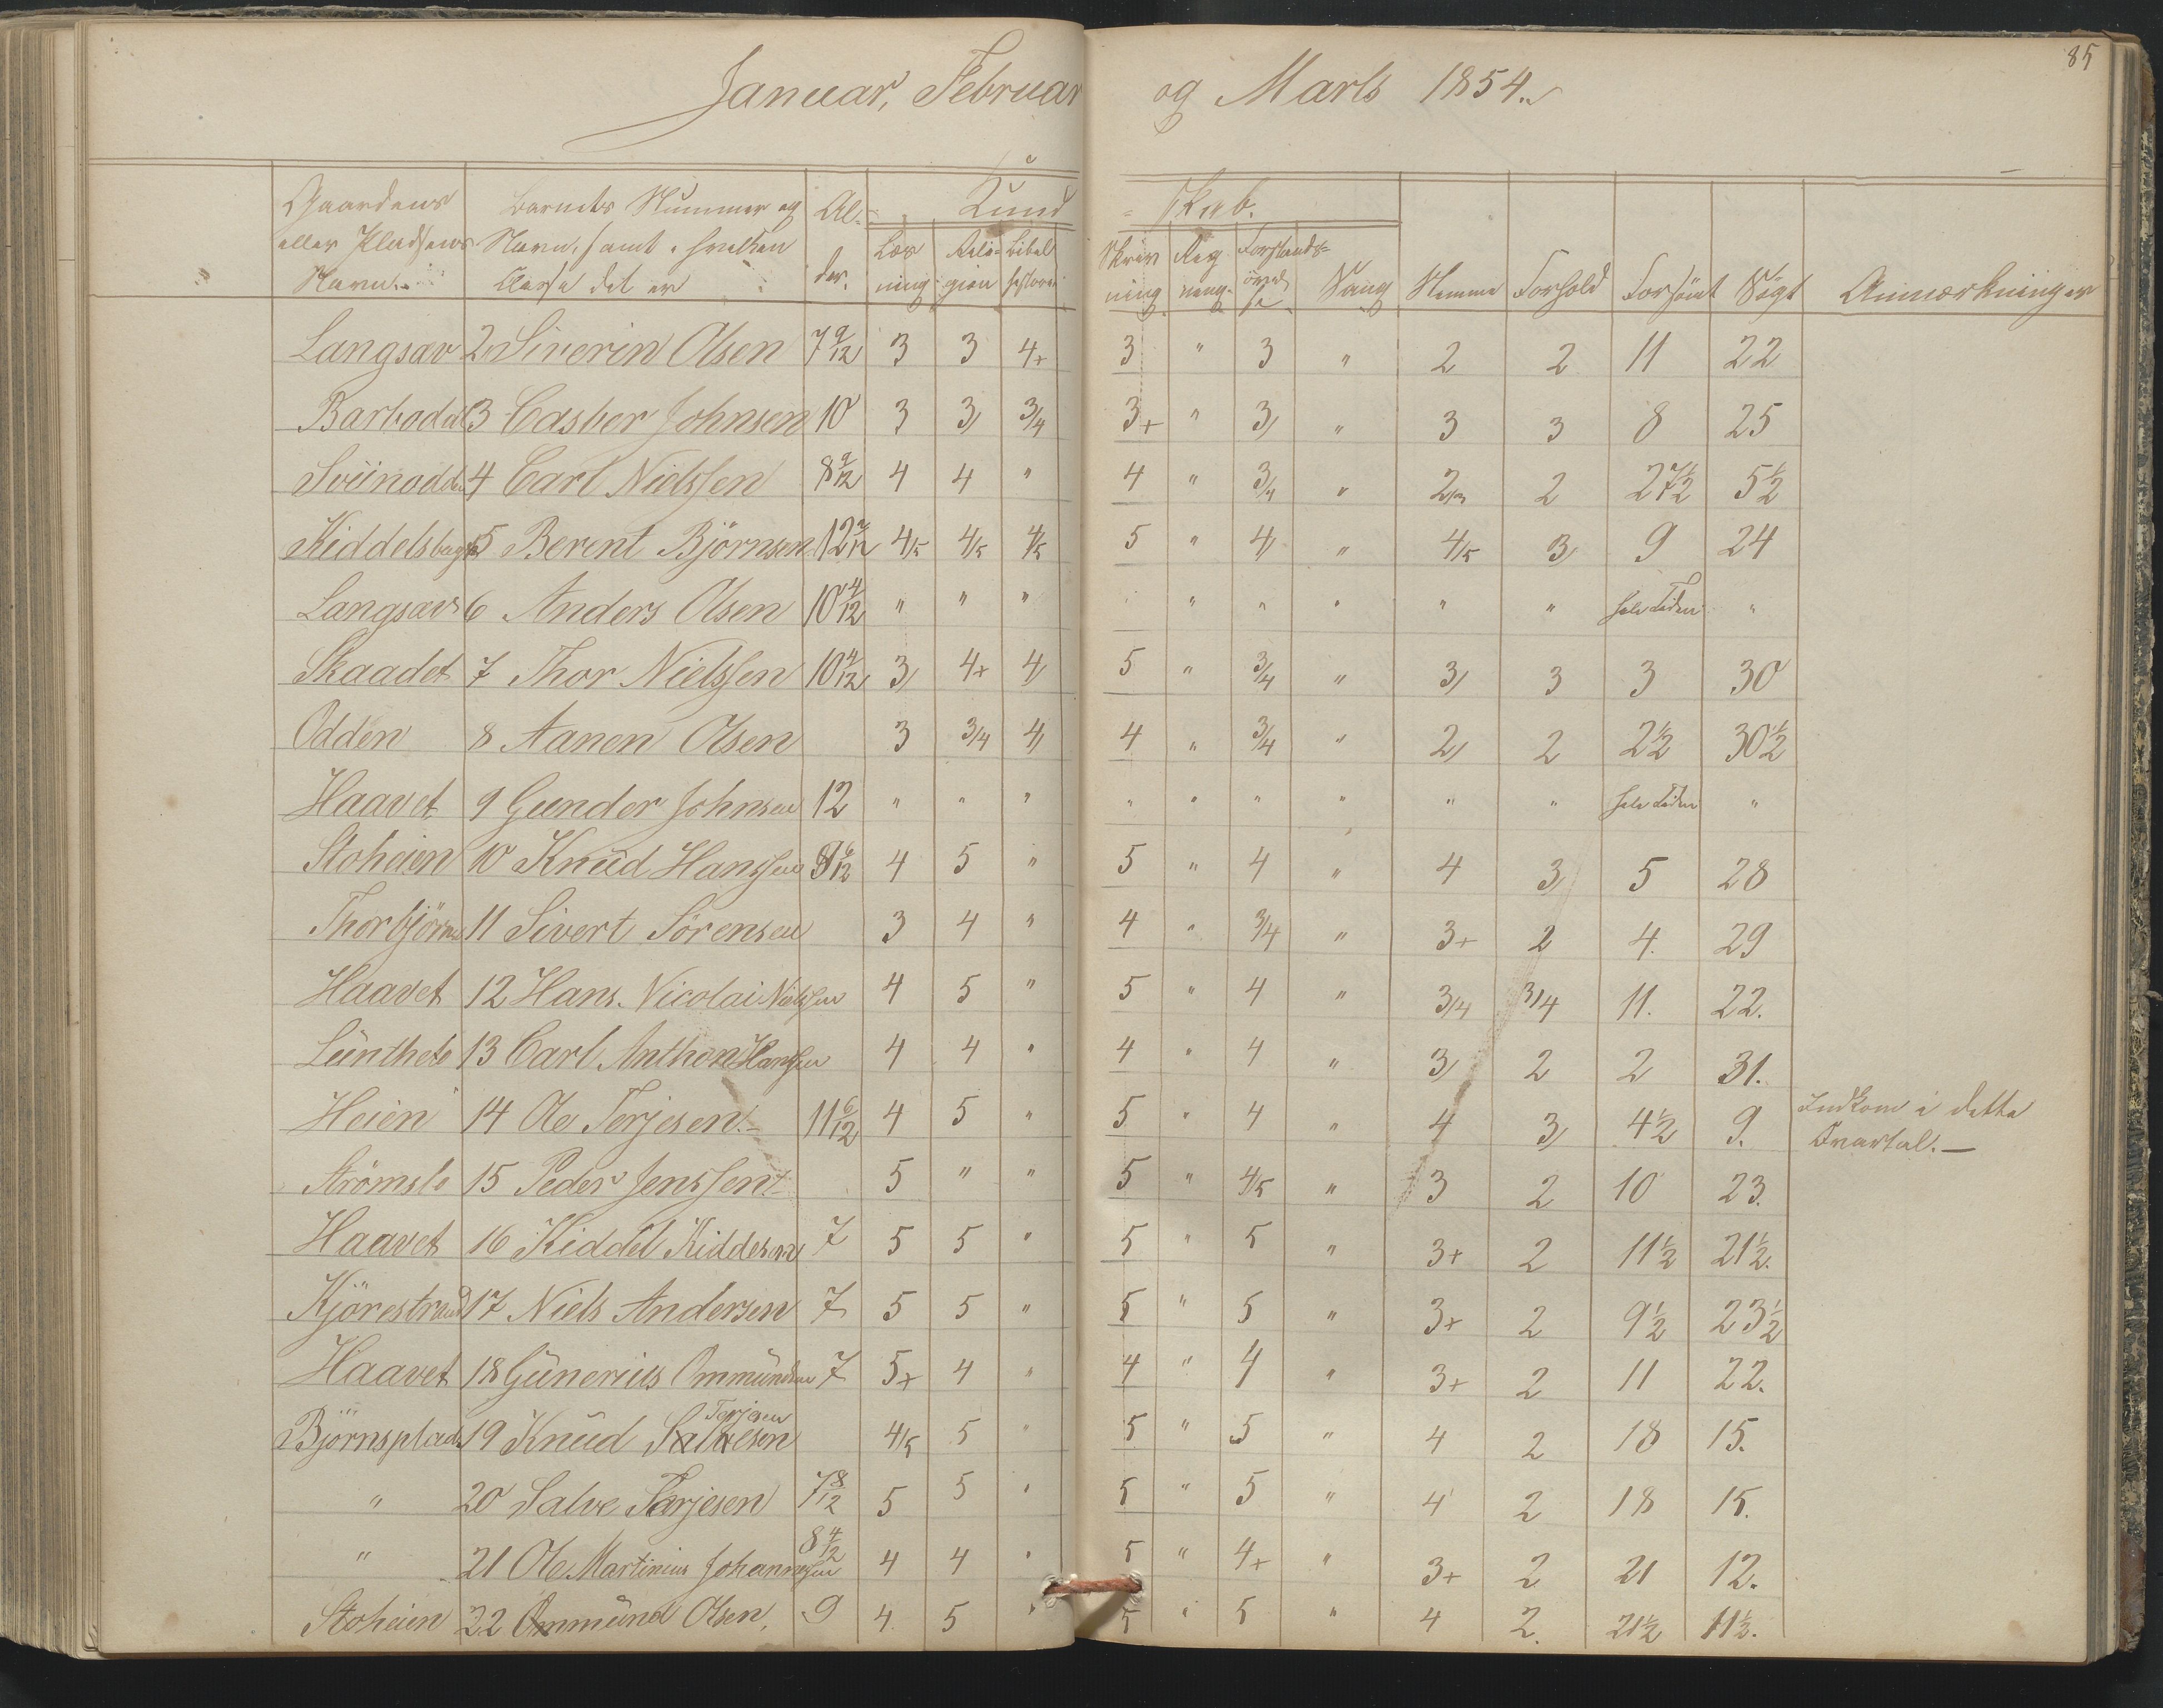 85
Januar, Februar og Marts 1854.
Gaardens eller Pladsens Navn. | Barnets Nummer og Navn, samt i hvilken Classe det er | Alder. | Kundskab. | Læsning | Religion | Bibelhistorie | Skrivning | Regning | Forstandsøvelse | Sang | Nemme | Forhold | Forsømt | Søgt | Anmærkninger
Langsæv 2 Siverin Olsen 7 9/12 3 3 4+ 3 " 3 " 2 2 11 22
Barbodal 3 Casber Johnsen 10 3 3/ 3/4 3+ " 3/ " 3 3 8 25
Sviinodden 4 Carl Nielssen 8 9/12 4 4 " 4 " 3/4 " 2/3 2 27½ 5½
Kiddelsbugt 5 Berent Björnsen 12 2/12 4/5 4/5 4/5 5 " 4/ " 4/5 3/ 9 24
Langsæv 6 Anders Olsen 10 4/12 " " " " " " " " " hele Tiden "
Skaadet 7 Thor Nielssen 10 4/12 3/ 4+ 4/ 5 " 3/4 " 3/ 3 3 30
Odden 8 Aanen Olsen 3 3/4 4/ 4 " 3/4 " 2/ 2 2½ 30½
Haavet 9 Gunder Johnsen 12 " " " " " " " " " hele Tiden "
Stoheien 10 Knud Hanssen 4 5 " 5 " 4 " 4 3/ 5 28
Thorbjörns 11 Sivert Sörensen 3 4 " 4 " 3/4 " 3+ 2 4. 29
Haavet 12 Hans Nicolai Nielssen 4 5 " 5 " 4 " 3/4 3/4 11. 22.
13 Carl Anthon Hanssen 4 4 " 4 " 4 " 3/ 2 2 31.
Heien 14 Ole Terjesen. 11 6/12 4 5 " 5 " 4 " 4 3/ 4½ 9. Indkom i dette
Qvartal. —
Strömsle 15 Peder Jenssen 5 " " 5 " 4/5 " 3 2 10 23.
Haavet 16 Kiddel Kiddelsen 7 5 5 " 5 " 5 " 3+ 2 11½ 21½.
Kjörestrand 17 Niels Andersen 7 5 5 " 5 " 5 " 3+ 2 9½ 23½
Haavet 18 Günerius Ommundsen 7 5+ 4 " 4 " 4 " 3+ 2 11 22.
Terjesen
Björnsplads 19 Knud Salvesen 4/5 5 " 5 " 5 " 4 2 18 15.
" 20 Salve Tarjesen 7 8/12 5 5 " 5 " 5 " 4 2 18 15.
" 21 Ole Martinius Johannessen 8 4/12 4 4 " 5 " 4+ " 3+ 2 21 12.
Stoheien 22 Ommund Olsen, 9 4 5 " 5 " 5 " 4 2. 21½ 11½.